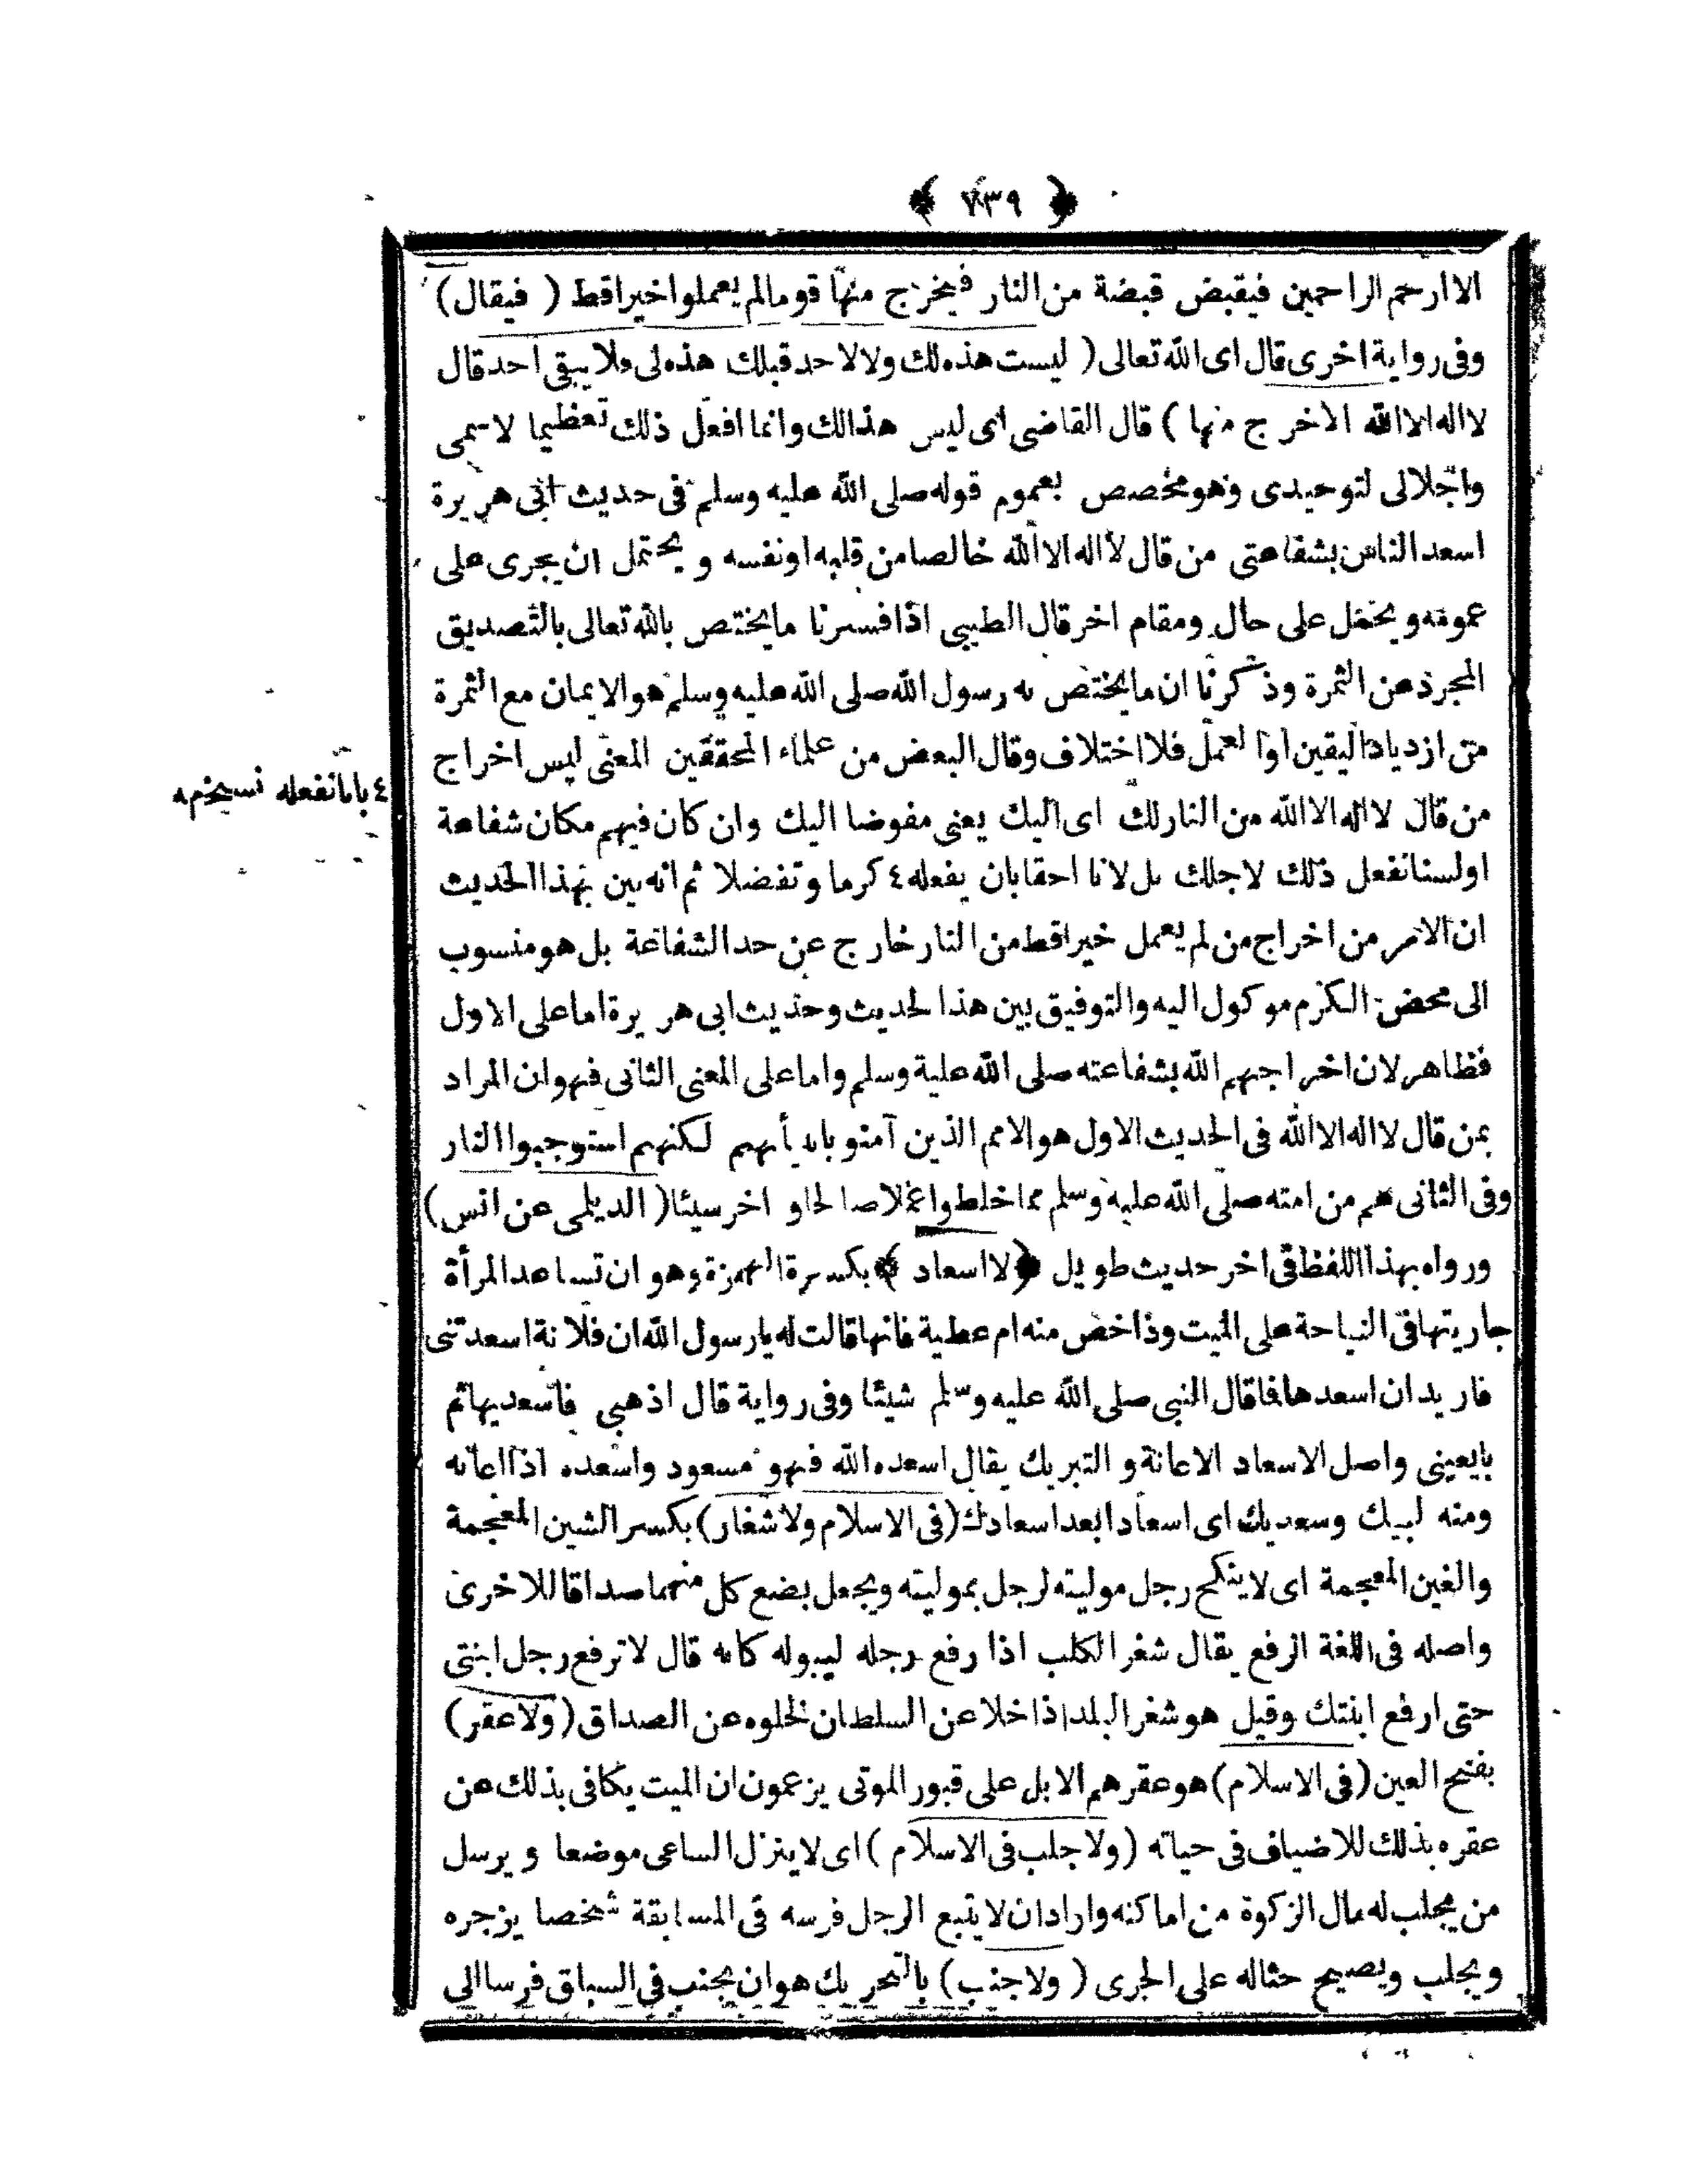 ﴿ ٧٣٩ ﴾
الا ارحم الراحمين فيقبض قبضة من النار فيخرج منها قوما لم يعملوا خيرا قط ( فيقال )
وفى رواية اخرى قال اى الله تعالى ( ليست هذه لك ولا لاحد قبلك هذه لى فلا يبقى احد قال
لا اله الا الله الا خر ج منها ) قال القاضى اى ليس هذا لك وانما افعل ذلك تعظيما لاسمى
واجلالى لتوحيدى وهو مخصص بعموم قوله صلى الله عليه وسلم فى حديث ابى هر يرة
اسعد الناس بشفاعتى من قال لا اله الا الله خالصا من قلبه او نفسه و يحتمل ان يجرى على
عمومه و يحمل على حال ومقام اخر قال الطيبى اذا فسرنا ما يختص بالله تعالى بالتصديق
المجرد عن الثمرة وذكرنا ان ما يختص به رسول الله صلى الله عليه وسلم هو الايمان مع الثمرة
من ازدياد اليقين او العمل فلا اختلاف وقال البعض من علماء المحققين المعنى ليس اخراج
من قال لا اله الا الله من النار لك اى اليك يعنى مفوضا اليك وان كان فيهم مكان شفاعة
اولسنا نفعل ذلك لاجلك بل لانا احقا بان يفعله ٤ كرما و تفضلا ثم انه بين بهذا الحديث
ان الامر من اخراج من لم يعمل خيرا قط من النار خارج عن حد الشفاعة بل هو منسوب
الى محض الكرم موكول اليه والتوفيق بين هذا الحديث وحديث ابى هر يرة اما على الاول
فظاهر لان اخراجهم الله بشفاعته صلى الله علية وسلم واما على المعنى الثانى فهو ان المراد
بمن قال لا اله الا الله فى الحديث الاول هو الامم الذين آمنو بانبيأئهم لكنهم استوجبوا النار
وفى الثانى هم من امته صلى الله عليه وسلم مما خلطوا عملا صالحا و اخر سيئا ( الديلمى عن انس )
ورواه بهذا اللفظ فى اخر حديث طويل ﴿ لا اسعاد ﴾ بكسرة الهمزة وهو ان تساعد المرأة
جاريتها فى النياحة على الميت وذا خص منه ام عطية فانها قالت له يا رسول الله ان فلانة اسعدتنى
فاريد ان اسعدها فما قال النبى صلى الله عليه وسلم شيئا وفى رواية قال اذهبى فاسعديها ثم
بايعينى واصل الاسعاد الاعانة و التبريك يقال اسعده الله فهو مسعود واسعده اذا اعانه
ومنه لبيك وسعديك اى اسعادا بعد اسعادك ( فى الاسلام ولا شغار ) بكسر الشين المعجمة
والغين المعجمة اى لا ينكح رجل موليته لرجل بموليته ويجعل بضع كل منهما صداقا للاخرى
واصله فى اللغة الرفع يقال شغر الكلب اذا رفع رجله ليبوله كانه قال لا ترفع رجل ابنتى
حتى ارفع ابنتك وقيل هو شغر البلد اذا خلا عن السلطان لخلوه عن الصداق ( ولا عقر )
بفتح العين ( فى الاسلام ) هو عقرهم الابل على قبور الموتى يزعمون ان الميت يكافى بذلك عن
عقره بذلك للاضياف فى حياته ( ولا جلب فى الاسلام ) اى لا ينزل الساعى موضعا و يرسل
من يجلب له مال الزكوة من اماكنه واراد ان لا يتبع الرجل فرسه فى المسابقة شخصا يزجره
ويجلب ويصيح حثاله على الجرى ( ولا جنب ) بالتحريك هو ان يجنب فى السباق فرسا الى
٤ بانا نفعله نسخه م